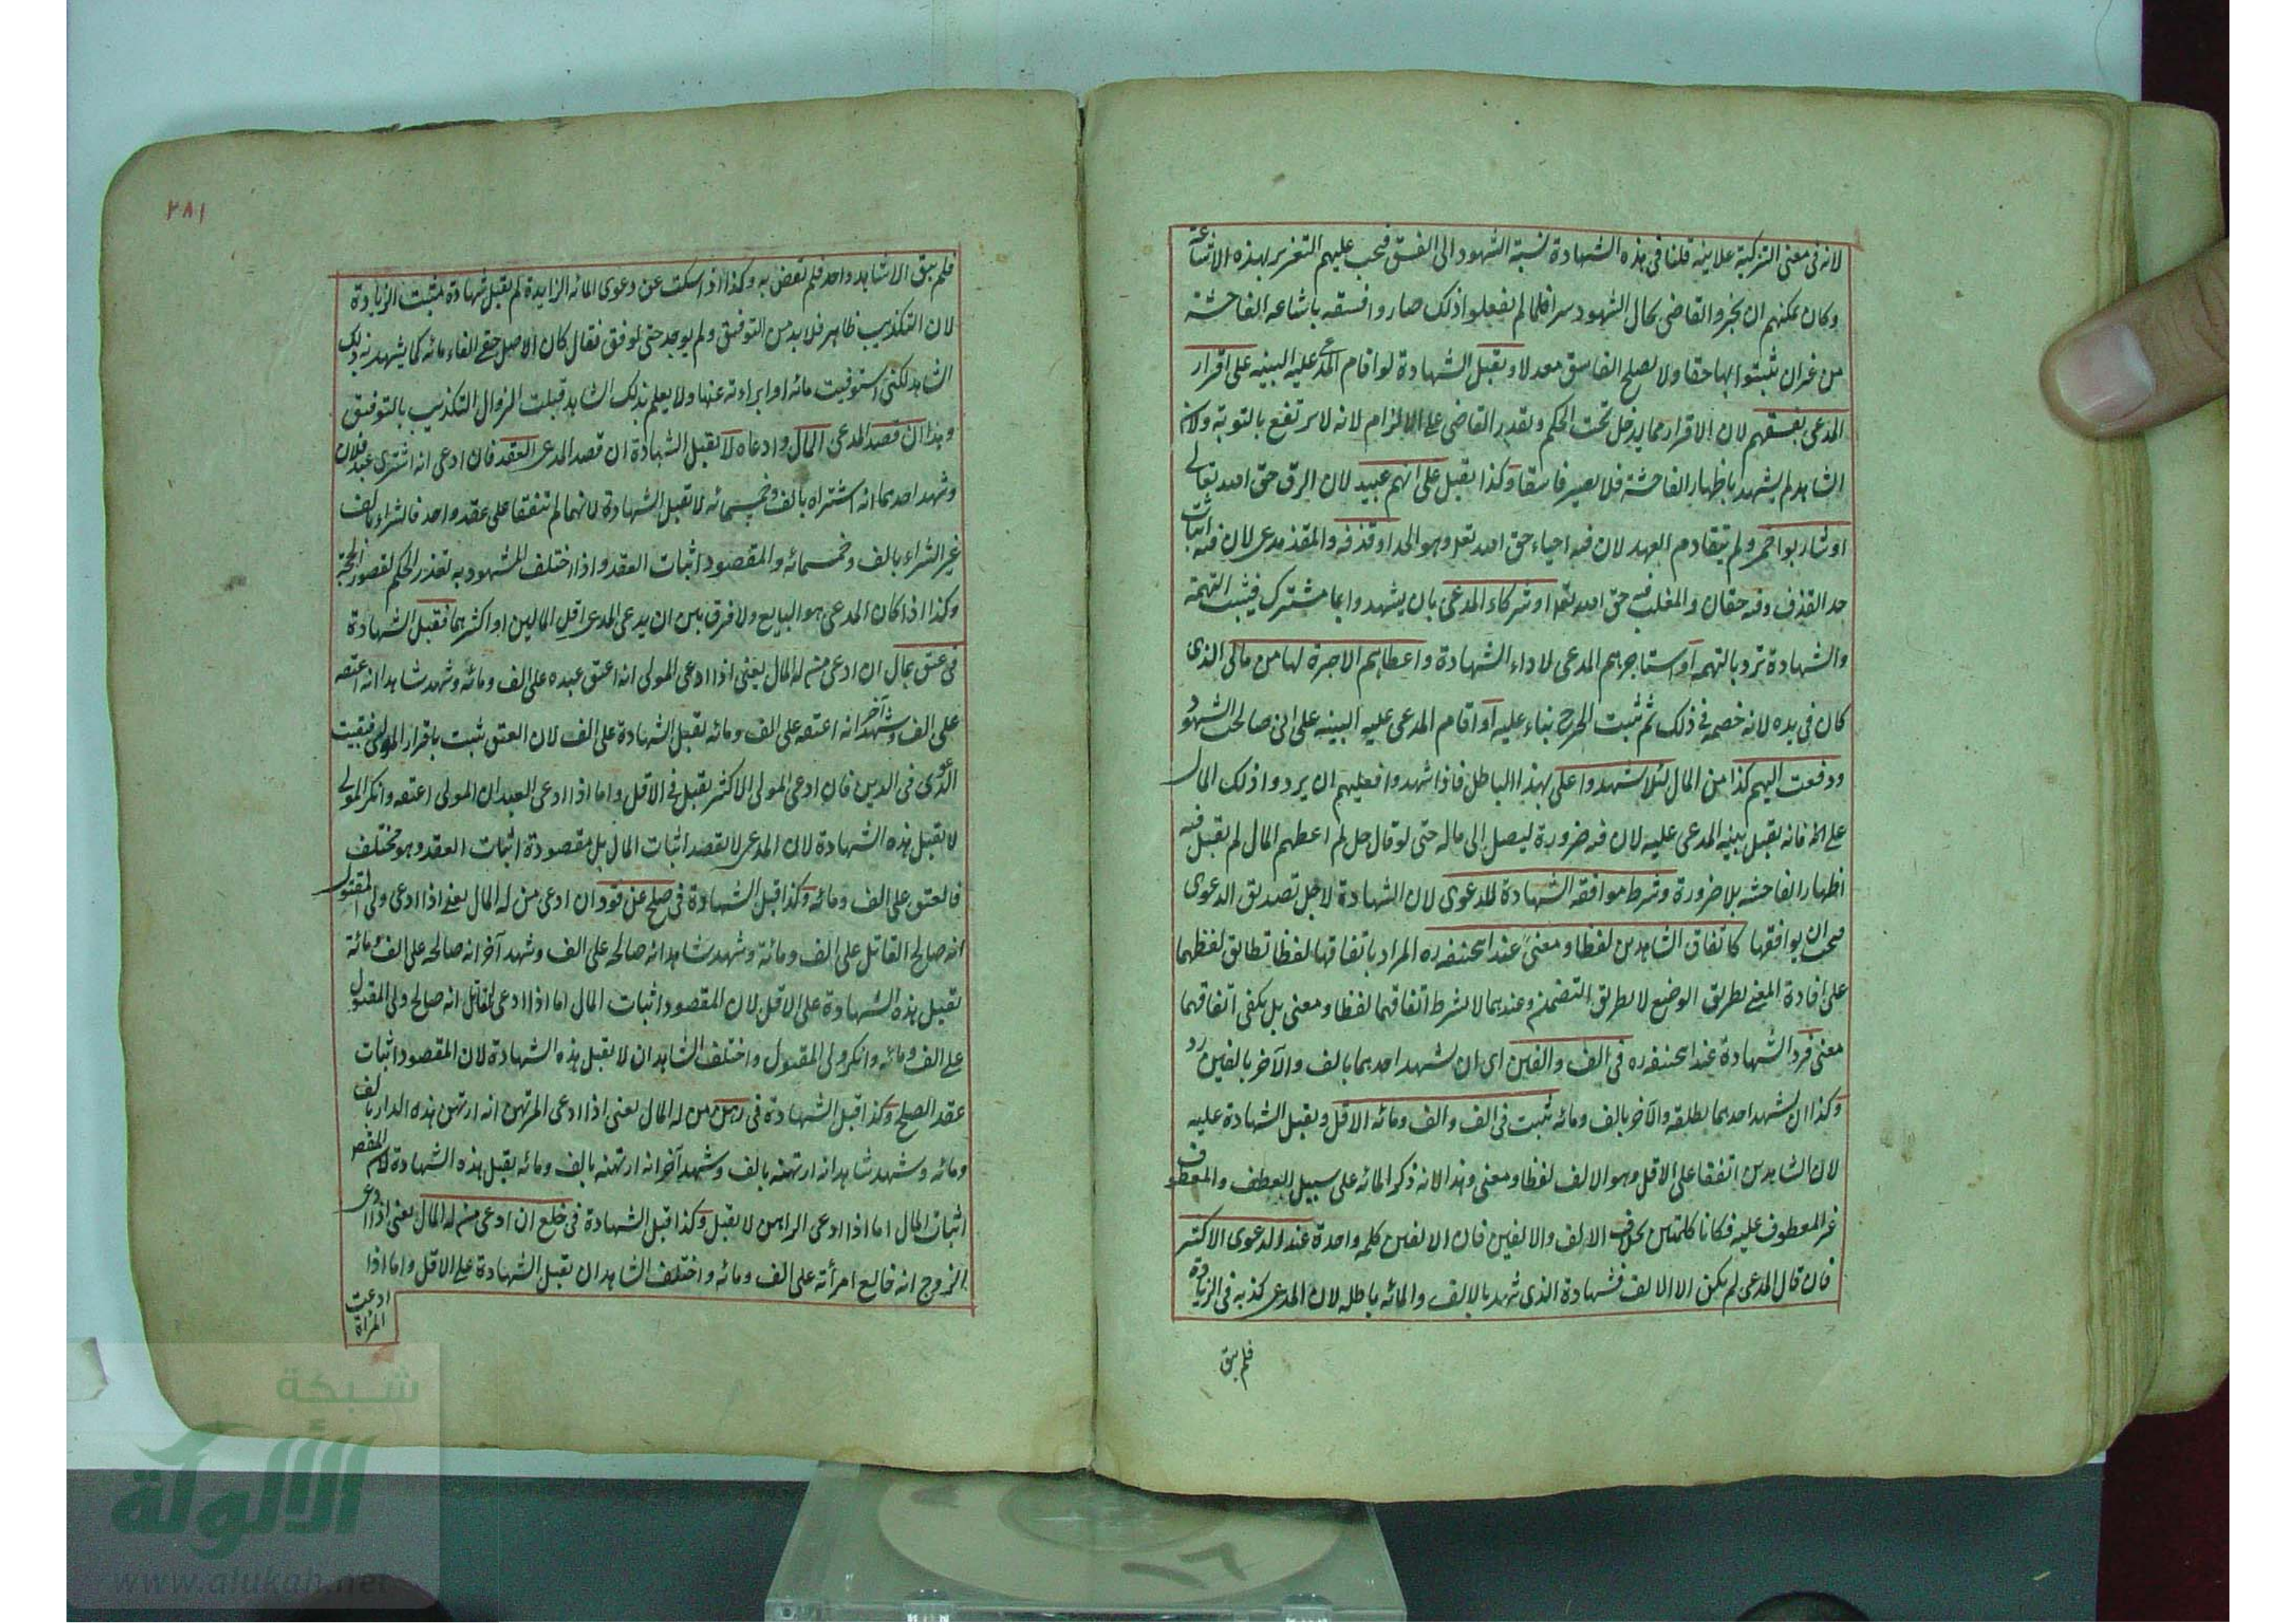 لانه فى معنى التزكية علانية قلنا فى هذه الشهادة نسبة الشهود الى الفسق فيجب عليهم التعزير بهذه الاشاعة
وكان يمكنهم ان يخبروا القاضى بحال الشهود سرا فلما لم يفعلوا ذلك صاروا فسقه باشاعه الفاحشة
من غير ان يثبتوا بها حقا ولا يصلح الفاسق معدلا ويقبل الشهادة لو اقام المدعى عليه البينه على اقرار
المدعى بفسقهم لان الاقرار مما يدخل تحت الحكم ويقدر القاضى على الالزام لانه لا يرتفع بالتوبة ولان
الشاهد لم يشهد باظهار الفاحشة فلا يصير فاسقا وكذا يقبل على انهم عبيد لان الرق حق الله تعالى
او شاربوا خمر ولم يتقادم العهد لان فيه احياء حق الله تعالى وهو الحد او قذفه والمقذوف مدعى لان فيه اثبات
حد القذف وفيه حقان والمغلب فيه حق الله تعالى او شركاء المدعى بان يشهدوا بما مشترك فيثبت التهمة
والشهادة ترد بالتهمه او استاجرهم المدعى لاداء الشهادة واعطاهم الاجرة لها من مالى الذى
كان فى يده لانه خصم فى ذلك ثم ثبت الجرح بناء عليه او اقام المدعى عليه البينه على انى صالحت الشهود
ودفعت اليهم كذا من المال لئلا يشهدوا على بهذا الباطل فاذا شهدوا فعليهم ان يردوا ذلك المال
على فانه يقبل بينه المدعى عليه لان فيه ضرورة ليصل الى ماله حتى لو قال لم اعطهم المال لم تقبل فيه
اظهار الفاحشه بلا ضرورة وشرط موافقة الشهادة للدعوى لان الشهادة لاجل تصديق الدعوى
فيجب ان يوافقها كاتفاق الشاهدين لفظا ومعنى عند ابى حنيفه ره المراد باتفاقها لفظا تطابق لفظهما
على افادة المعنى بطريق الوضع لا بطريق التضمن وعندهما لا يشترط اتفاقهما لفظا ومعنى بل يكفى اتفاقهما
معنى فرد الشهادة عند ابى حنيفه ره فى الف والفين اى ان يشهد احدهما بالف والآخر بالفين رد
وكذا ان يشهد احدهما بطلقه والآخر بالف ومائه ثبت فى الف والف ومائه الاقل ويقبل الشهادة عليه
لان الشاهدين اتفقا على الاقل وهو الالف لفظا ومعنى وهذا لانه ذكر المائه على سبيل العطف والمعطوف
غير المعطوف عليه فكانا كلمتين بخلاف الالف والالفين فان الالفين كلمه واحدة عند الدعوى الاكثر
فان قال المدعى لم يكن الا الالف فشهادة الذى شهد بالالف والمائه باطله لان المدعى كذبه فى الزيادة
فلم يبق
٢٨١
فلم يبق الا شاهد واحد فلم تقض به وكذا اذا سكت عن دعوى المائه الزايدة لم يقبل شهادة مثبت الزيادة
لان التكذيب ظاهر فلا بد من التوفيق ولم يوجد حتى لو وفق فقال كان الاصل حقى الفا ومائه كما يشهد به ذلك
الشاهد لكنى استوفيت مائه او ابراءته عنها ولا يعلم بذلك الشاهد قبلت لزوال التكذيب بالتوفيق
وهذا ان قصد المدعى المال وادعاه لا يقبل الشهادة ان قصد المدعى العقد فان ادعى انه اشترى عبد فلان
وشهد احدهما انه اشتراه بالف وخمسمائه لا تقبل الشهادة لانهما لم تتفقا على عقد واحد فالشراء بالف
غير الشراء بالف وخمسمائه والمقصود اثبات العقد واذا اختلف المشهود به تعذر الحكم لقصور الحجة
وكذا اذا كان المدعى هو البايع ولا فرق بين ان يدعى المدعى اقل المالين او اكثرهما فتقبل الشهادة
فى عتق بمال ان ادعى من له المال يعنى اذا ادعى المولى انه اعتق عبده على الف ومائه وشهد شاهد انه اعتقه
على الف وشهد آخر انه اعتقه على الف ومائه يقبل الشهادة على الف لان العتق ثبت باقرار المولى فبقيت
الدعوى فى الدين فان ادعى المولى الاكثر يقبل فى الاقل واما اذا ادعى العبد ان المولى اعتقه وانكر المولى
لا يقبل هذه الشهادة لان المدعى لا يقصد اثبات المال بل مقصودة اثبات العقد وهو مختلف
فالعتق على الف ومائه وكذا قبل الشهادة فى صلح عن قود ان ادعى من له المال يعنى اذا ادعى ولى المقتول
انه صالح القاتل على الف ومائة وشهد شاهد انه صالحه على الف وشهد آخر انه صالحه على الف ومائة
تقبل هذه الشهادة على الاقل لان المقصود اثبات المال اما اذا ادعى القاتل انه صالح ولى المقتول
على الف ومائه وانكر ولى المقتول واختلف الشاهدان لا يقبل هذه الشهادة لان المقصود اثبات
عقد الصلح وكذا قبل الشهادة فى رهن من له المال يعنى اذا ادعى المرتهن انه ارتهن هذه الدار بالف
ومائه وشهد شاهد انه ارتهنه بالف وشهد آخر انه ارتهنه بالف ومائه يقبل هذه الشهادة لان المقص
اثبات المال اما اذا ادعى الراهن لا يقبل وكذا قبل الشهادة فى خلع ان ادعى من له المال يعنى اذا ادعى
الزوج انه خالع امرأته على الف ومائه واختلف الشاهدان تقبل الشهادة على الاقل واما اذا
ادعت
المراة
شبكة
الألوكة
www.alukah.net